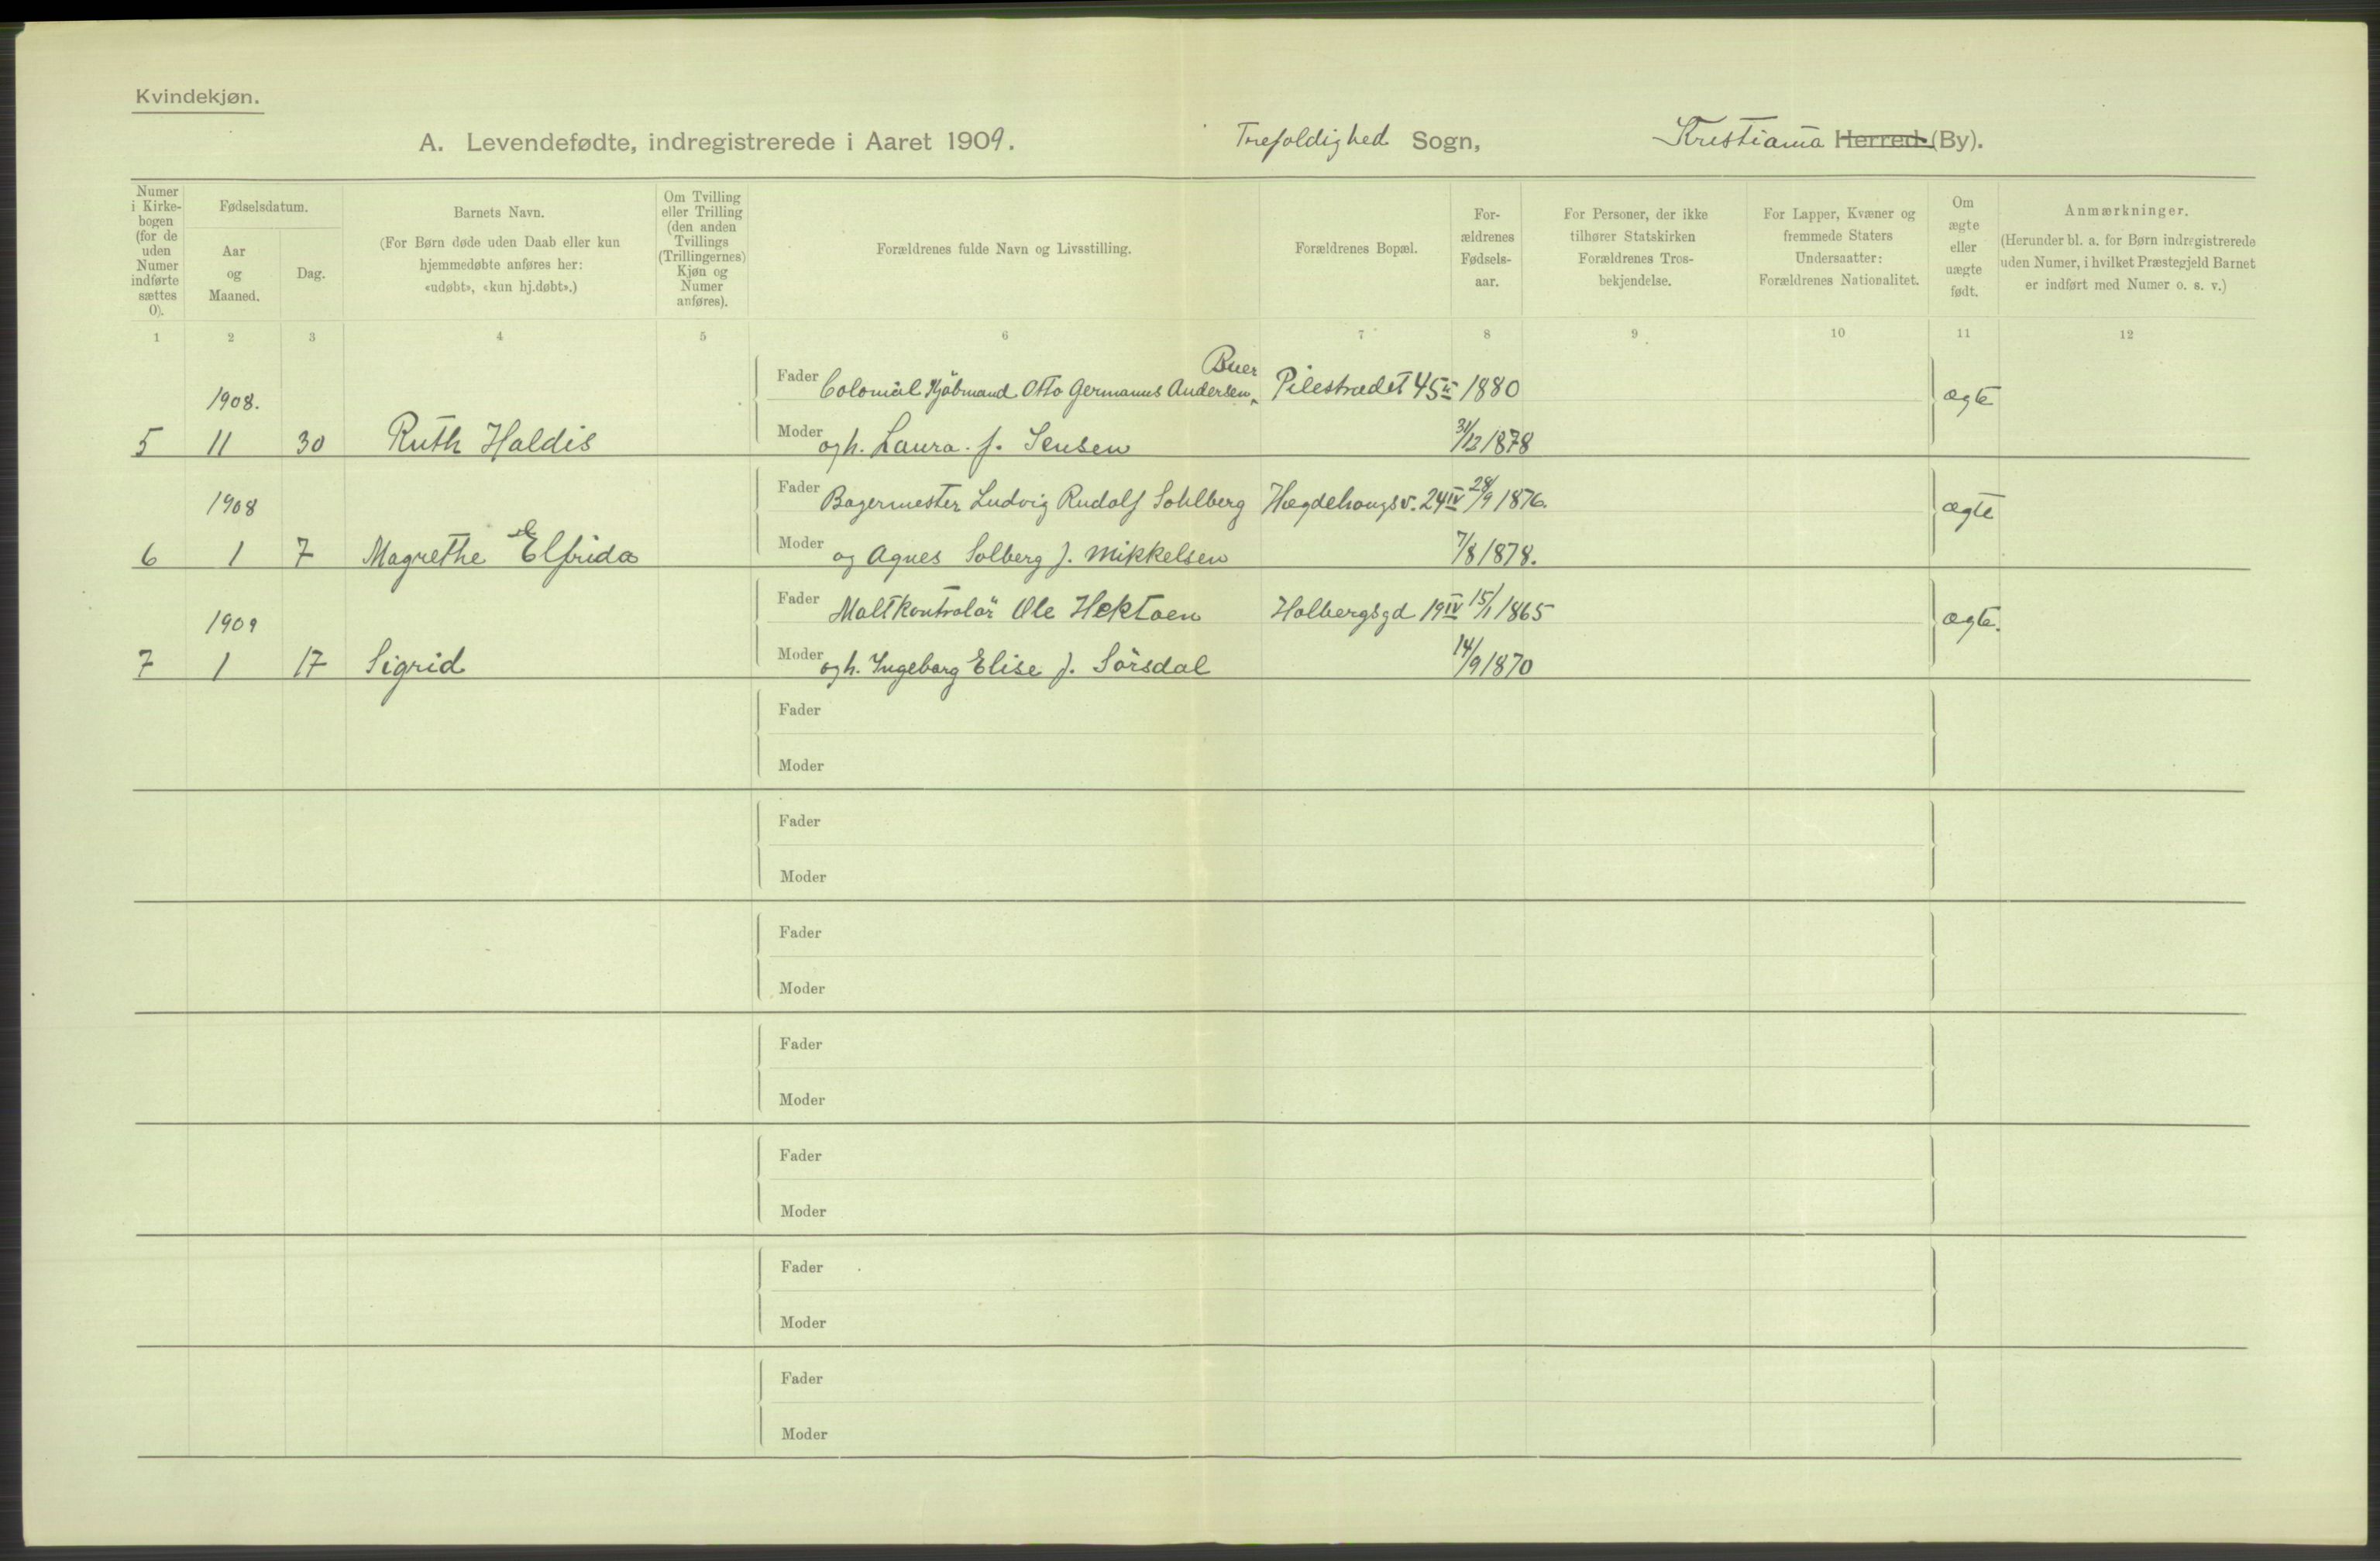 Kvindekjøn.
A. Levendefødte, indregistrerede i Aaret 1909. Trefoldighed Sogn, Kristiania Herred (By).
Numer i Kirke- bogen (for de uden Numer indførte sættes 0).
Fødselsdatum.
Aar og Maaned.
Dag.
Barnets Navn.
(For Børn døde uden Daab eller kun
hjemmedøbte anføres her:
«udøbt», «kun hj.døbt».)
Om Tvilling eller Trilling (den anden Tvillings (Trillingernes) Kjøn og Numer anføres).
Forældrenes fulde Navn og Livsstilling.
Forældrenes Bopæl.
For- ældrenes Fødsels- aar.
For Personer, der ikke tilhører Statskirken Forældrenes Tros- bekjendelse.
For Lapper, Kvæner og fremmede Staters Undersaatter: Forældrenes Nationalitet.
Om ægte eller uægte født.
Anmærkninger.
(Herunder bl. a. for Børn indregistrerede
uden Numer, i hvilket Præstegjeld Barnet
er indført med Numer o. s. v.)
1 2 3 4 5 6 7 8 9 10 11 12
Buer
1908. Fader Colonial Kjöbmand Otto Germanus Andersen, Pilestrædet 45 II 1880 ægte
5 11 30 Ruth Haldis Moder og h. Laura f. Jensen 31/12 1878
1908 Fader Bagermester Ludvig Rudolf Sohlberg Hægdehougsv. 24 IV 28/9 1876. ægte
6 1 7 Magrethe Elfrida Moder og Agnes Solberg f. Mikkelsen 7/8 1878.
1909 Fader Maltkontrolör Ole Hektoen Holbergsgd 19 IV 15/1 1865 ægte.
7 1 17 Sigrid Moder og h. Ingeborg Elise f. Sörsdal 14/9 1870
Fader
Moder
Fader
Moder
Fader
Moder
Fader
Moder
Fader
Moder
Fader
Moder
Fader
Moder